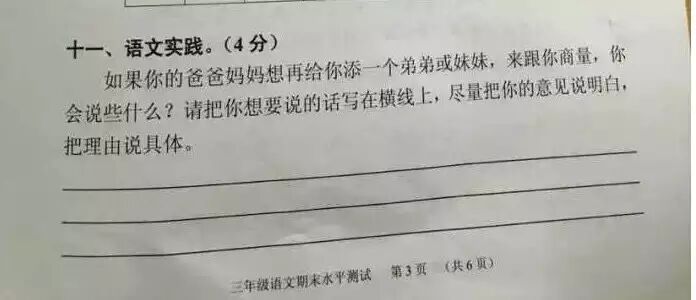 十一、语文实践。(4分)
如果你的爸爸妈妈想再给你添一个弟弟或妹妹，来跟你商量，你
会说些什么？请把你想要说的话写在横线上，尽量把你的意见说明白，
把理由说具体。
三年级语文期末水平测试 第3页 (共6页)